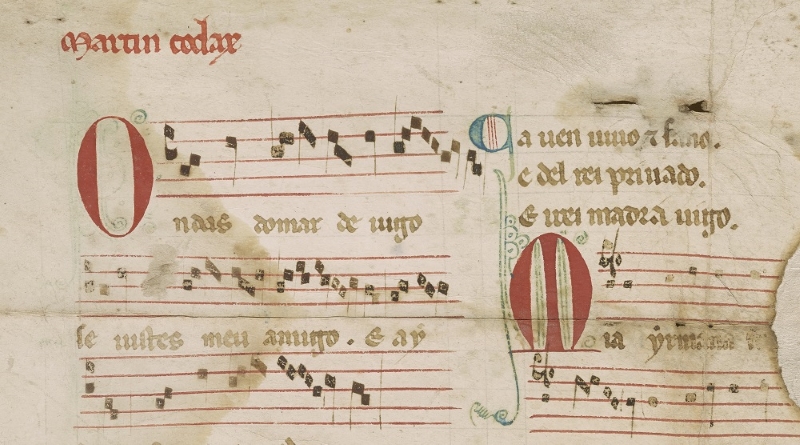 Martin codax
Ondas domar de uigo
se uistes meu amigo. E ay
Ca uen uiuo ⁊ sano.
e del rei priuado.
E irei madra uigo.
Mia yrmana